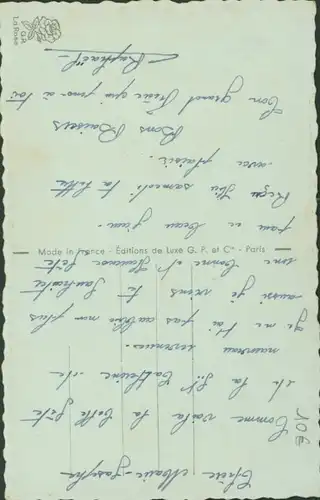 Chère Marie-Josèphe
Comme voila la belle fête
de la Ste Catherine de
nouveau revenue.
Je ne t'ai pas oublié non plus
aussi je viens te Souhaiter
une bonne et heureuse fête
par ce beau jour.
Reçu Jeu samedi ta lettre
avec plaisir.
Bons Baisers
Ton grand Frère qui pense à toi
Raphaël
Made in France - Éditions de Luxe G. P. et Cie - Paris
La Rose
G.P.
JOE